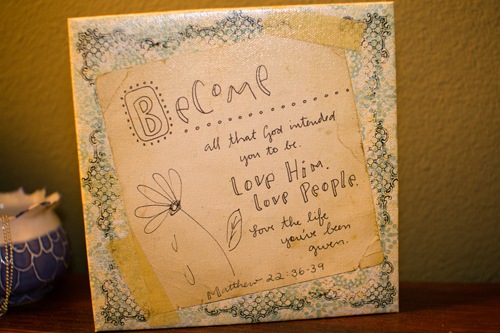 Become
all that God intended
you to be.
Love Him.
Love People.
Love the life
you've been
given.
Matthew 22:36-39